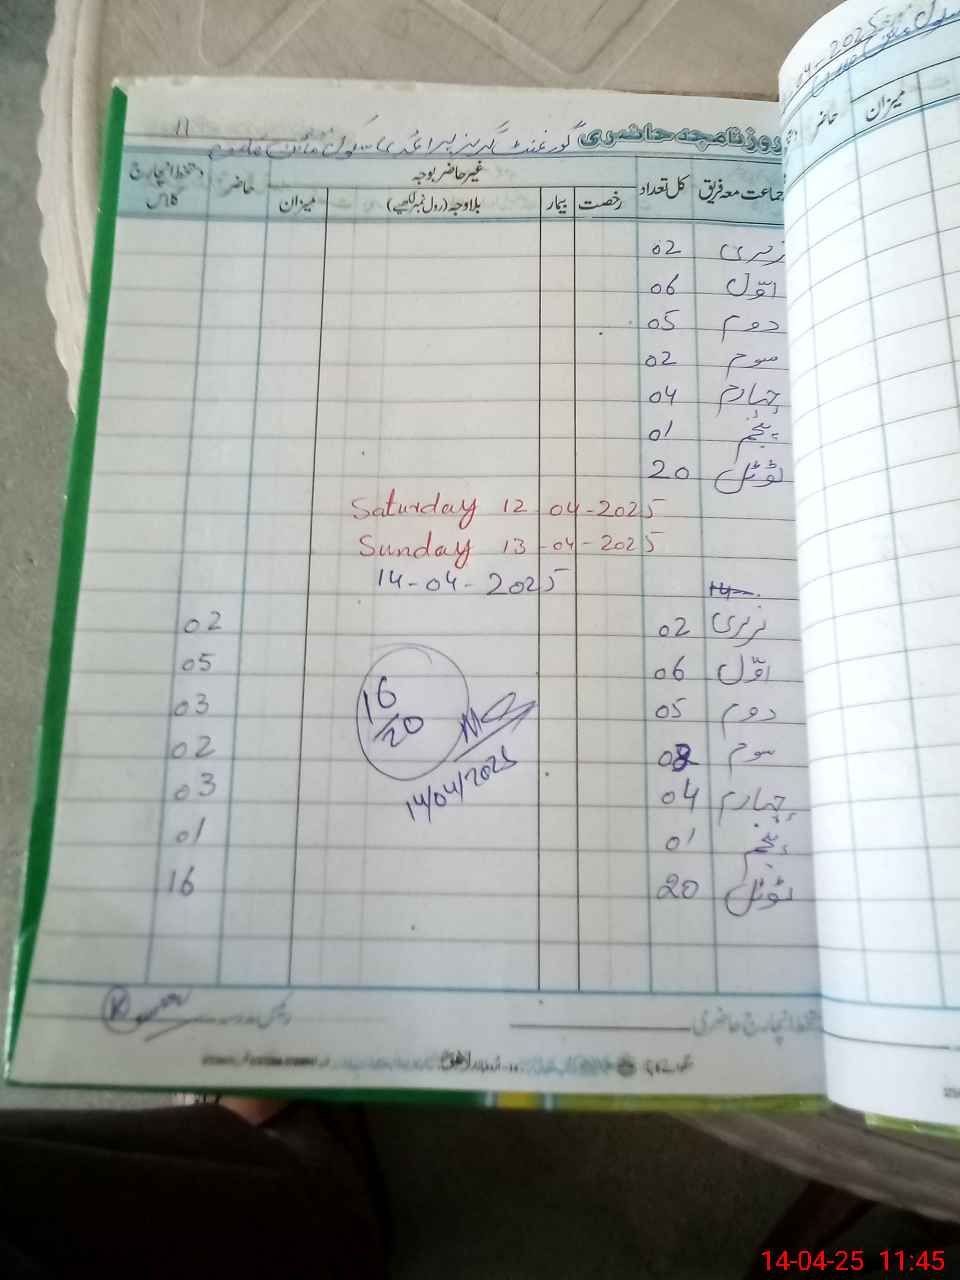 روزنامچہ حاضری گورنمنٹ گرلز پرائمری سکول
11
جماعت معہ فریق کل تعداد غیر حاضر بوجہ حاضر دستخط انچارج کلاس
رخصت بیمار بلاوجہ (رول نمبر لکھیے) میزان
نرسری 02
اوّل 06
دوم 05
سوم 02
چہارم 04
پنجم 01
ٹوٹل 20
Saturday 12-04-2025
Sunday 13-04-2025
14-04-2025
نرسری 02 02
اوّل 06 05
دوم 05 03
16/20
سوم 02 02
14/04/2025
چہارم 04 03
پنجم 01 01
ٹوٹل 20 16
دستخط انچارج حاضری
04-2025
حاضر میزان
14-04-25 11:45